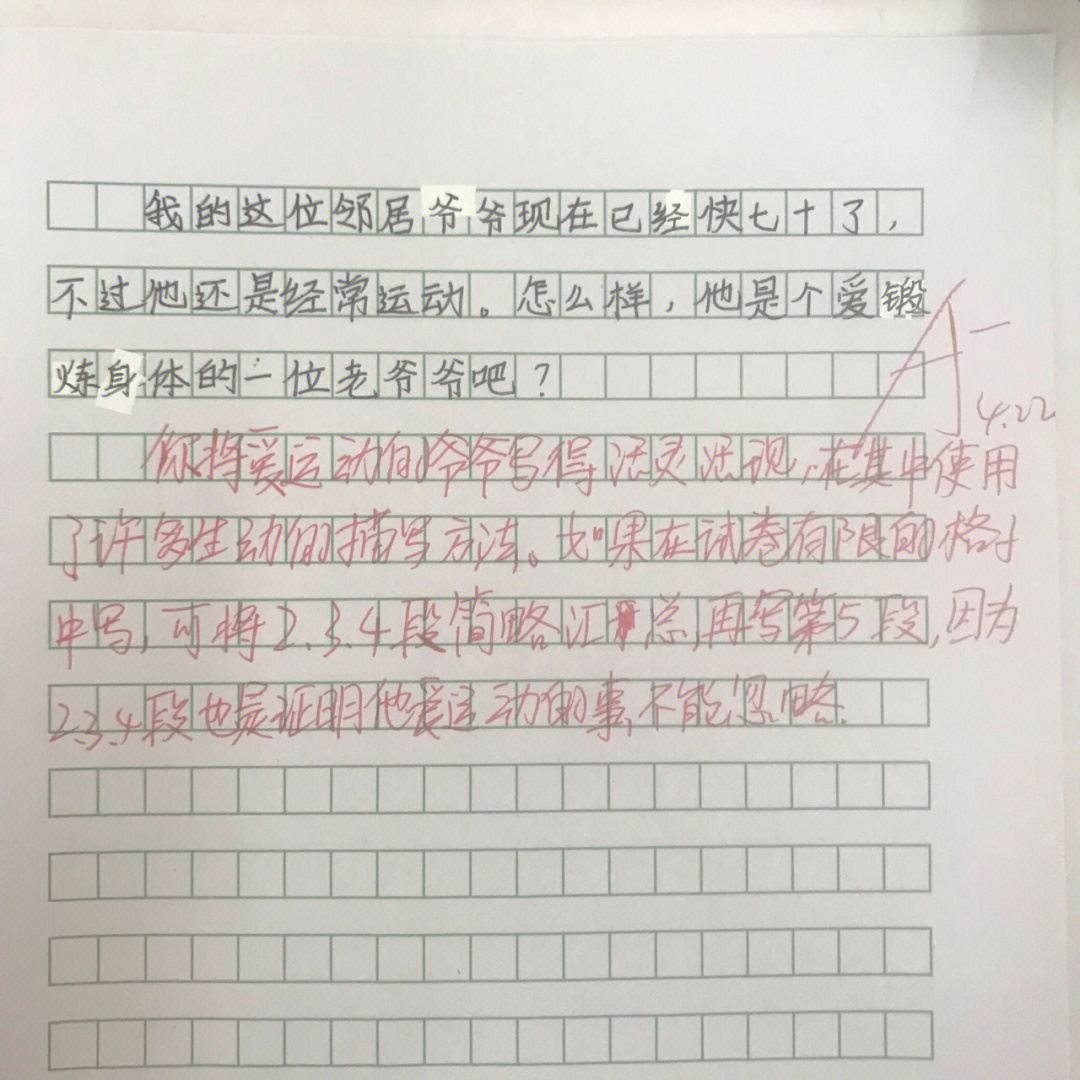 我的这位邻居爷爷现在已经快七十了，
不过他还是经常运动。怎么样，他是个爱锻
炼身体的一位老爷爷吧？
A-
4.22
你将爱运动的爷爷写得活灵活现，在其中使用
了许多生动的描写方法。如果在试卷有限的格子
中写，可将2.3.4段简略汇总，再写第5段，因为
2.3.4段也是证明他爱运动的事，不能忽略